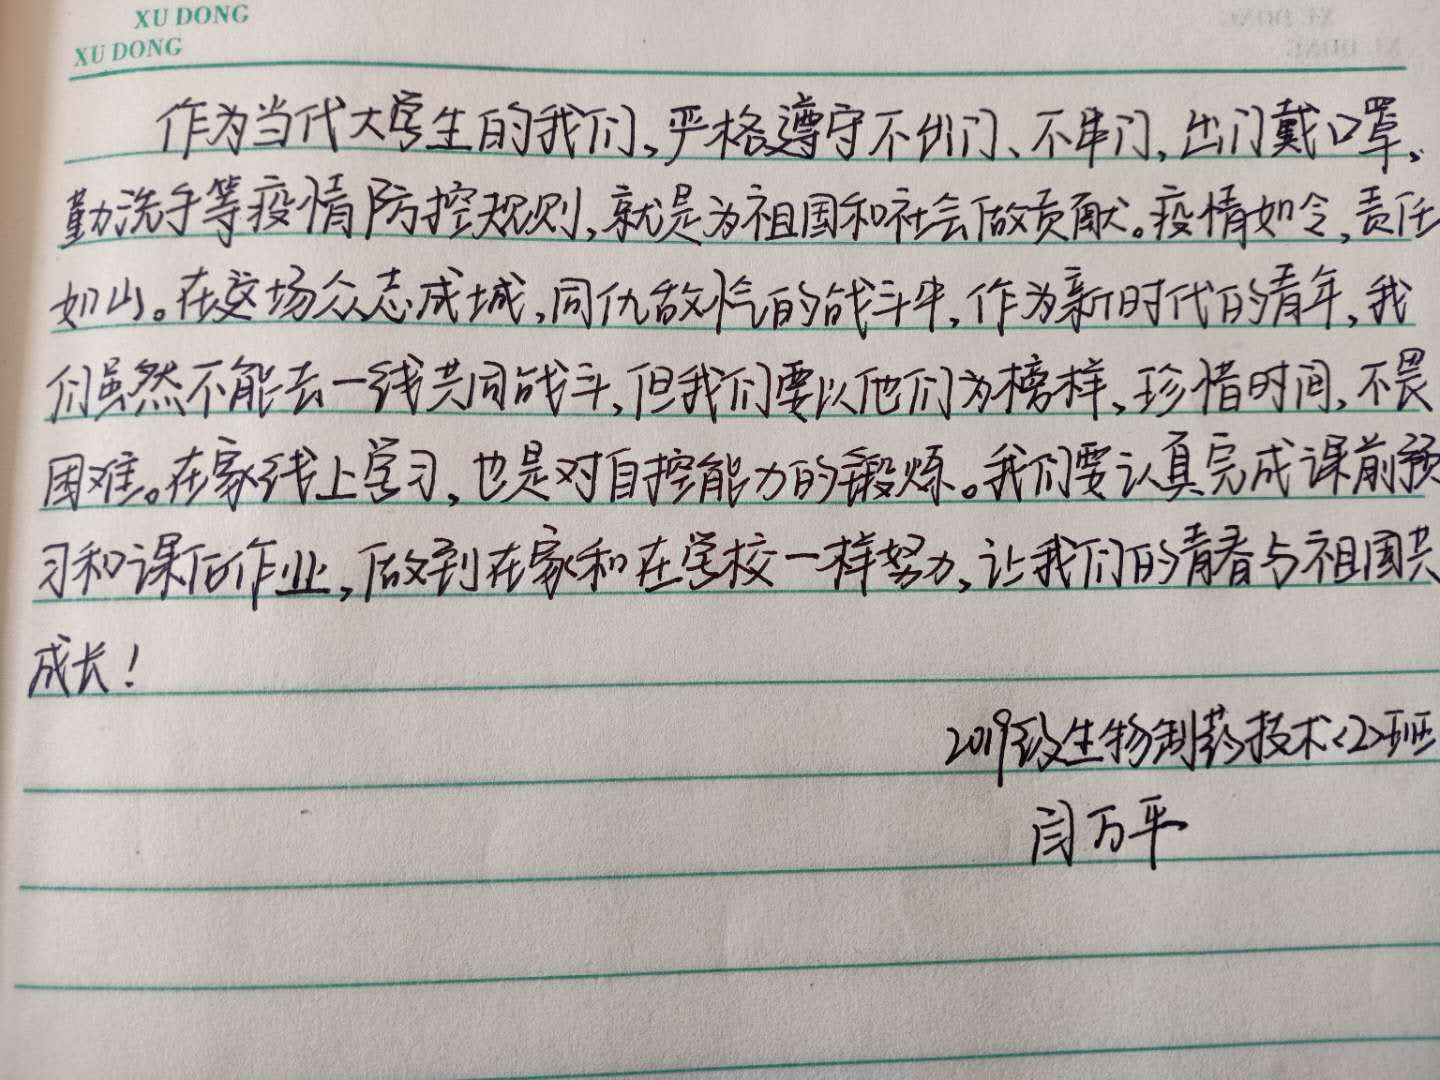 XU DONG
XU DONG
作为当代大学生的我们,严格遵守不出门、不串门,出门戴口罩、
勤洗手等疫情防控规则,就是为祖国和社会做贡献。疫情如令,责任
如山。在这场众志成城,同仇敌忾的战斗中,作为新时代的青年,我
们虽然不能去一线共同战斗,但我们要以他们为榜样,珍惜时间,不畏
困难。在家线上学习,也是对自控能力的锻炼。我们要认真完成课前预
习和课后作业,做到在家和在学校一样努力,让我们的青春与祖国共
成长!
2019级生物制药技术<2>班
闫万平